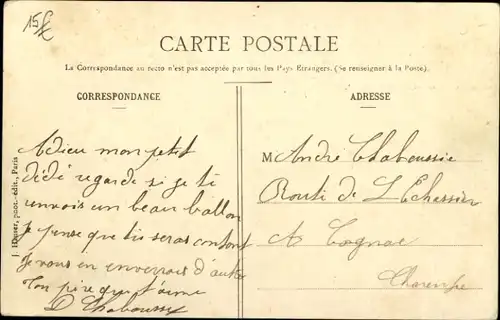 15f
CARTE POSTALE
La Correspondance au recto n'est pas acceptée par tous les Pays Etrangers. (Se renseigner à la Poste).
CORRESPONDANCE
ADRESSE
Adieu mon petit
dédé regarde si je ti
envois un beau ballon
je pense que tu seras contont
Je vous en enverrais d'autre
Ton père qui t'aime
D Chaboussie
M André Chaboussie
Routi de L'Echassier
A Cognac
Charente
édit., Paris